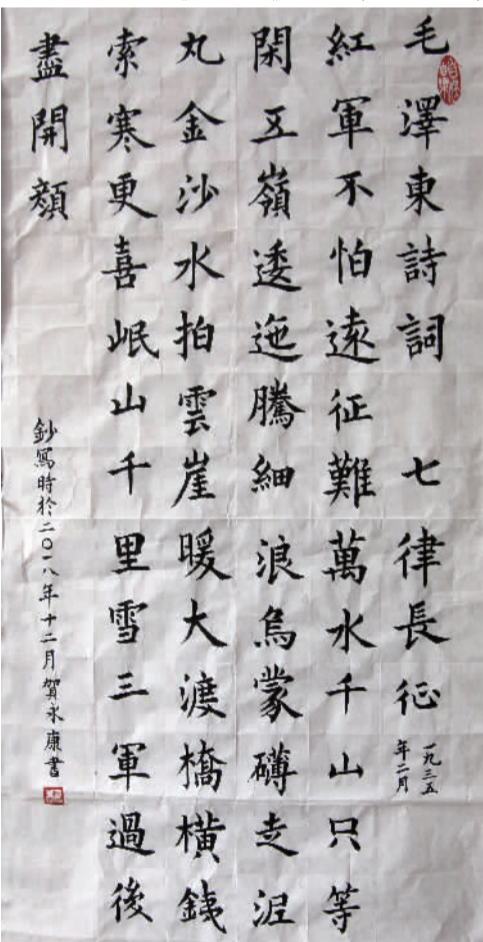 毛澤東詩詞 七律長征
一九三五
年二月
紅軍不怕遠征難萬水千山只等
閑五嶺逶迤騰細浪烏蒙礴走泥
丸金沙水拍雲崖暖大渡橋橫銕
索寒更喜岷山千里雪三軍過後
盡開顏
鈔寫時於二〇一八年十二月賀永康書